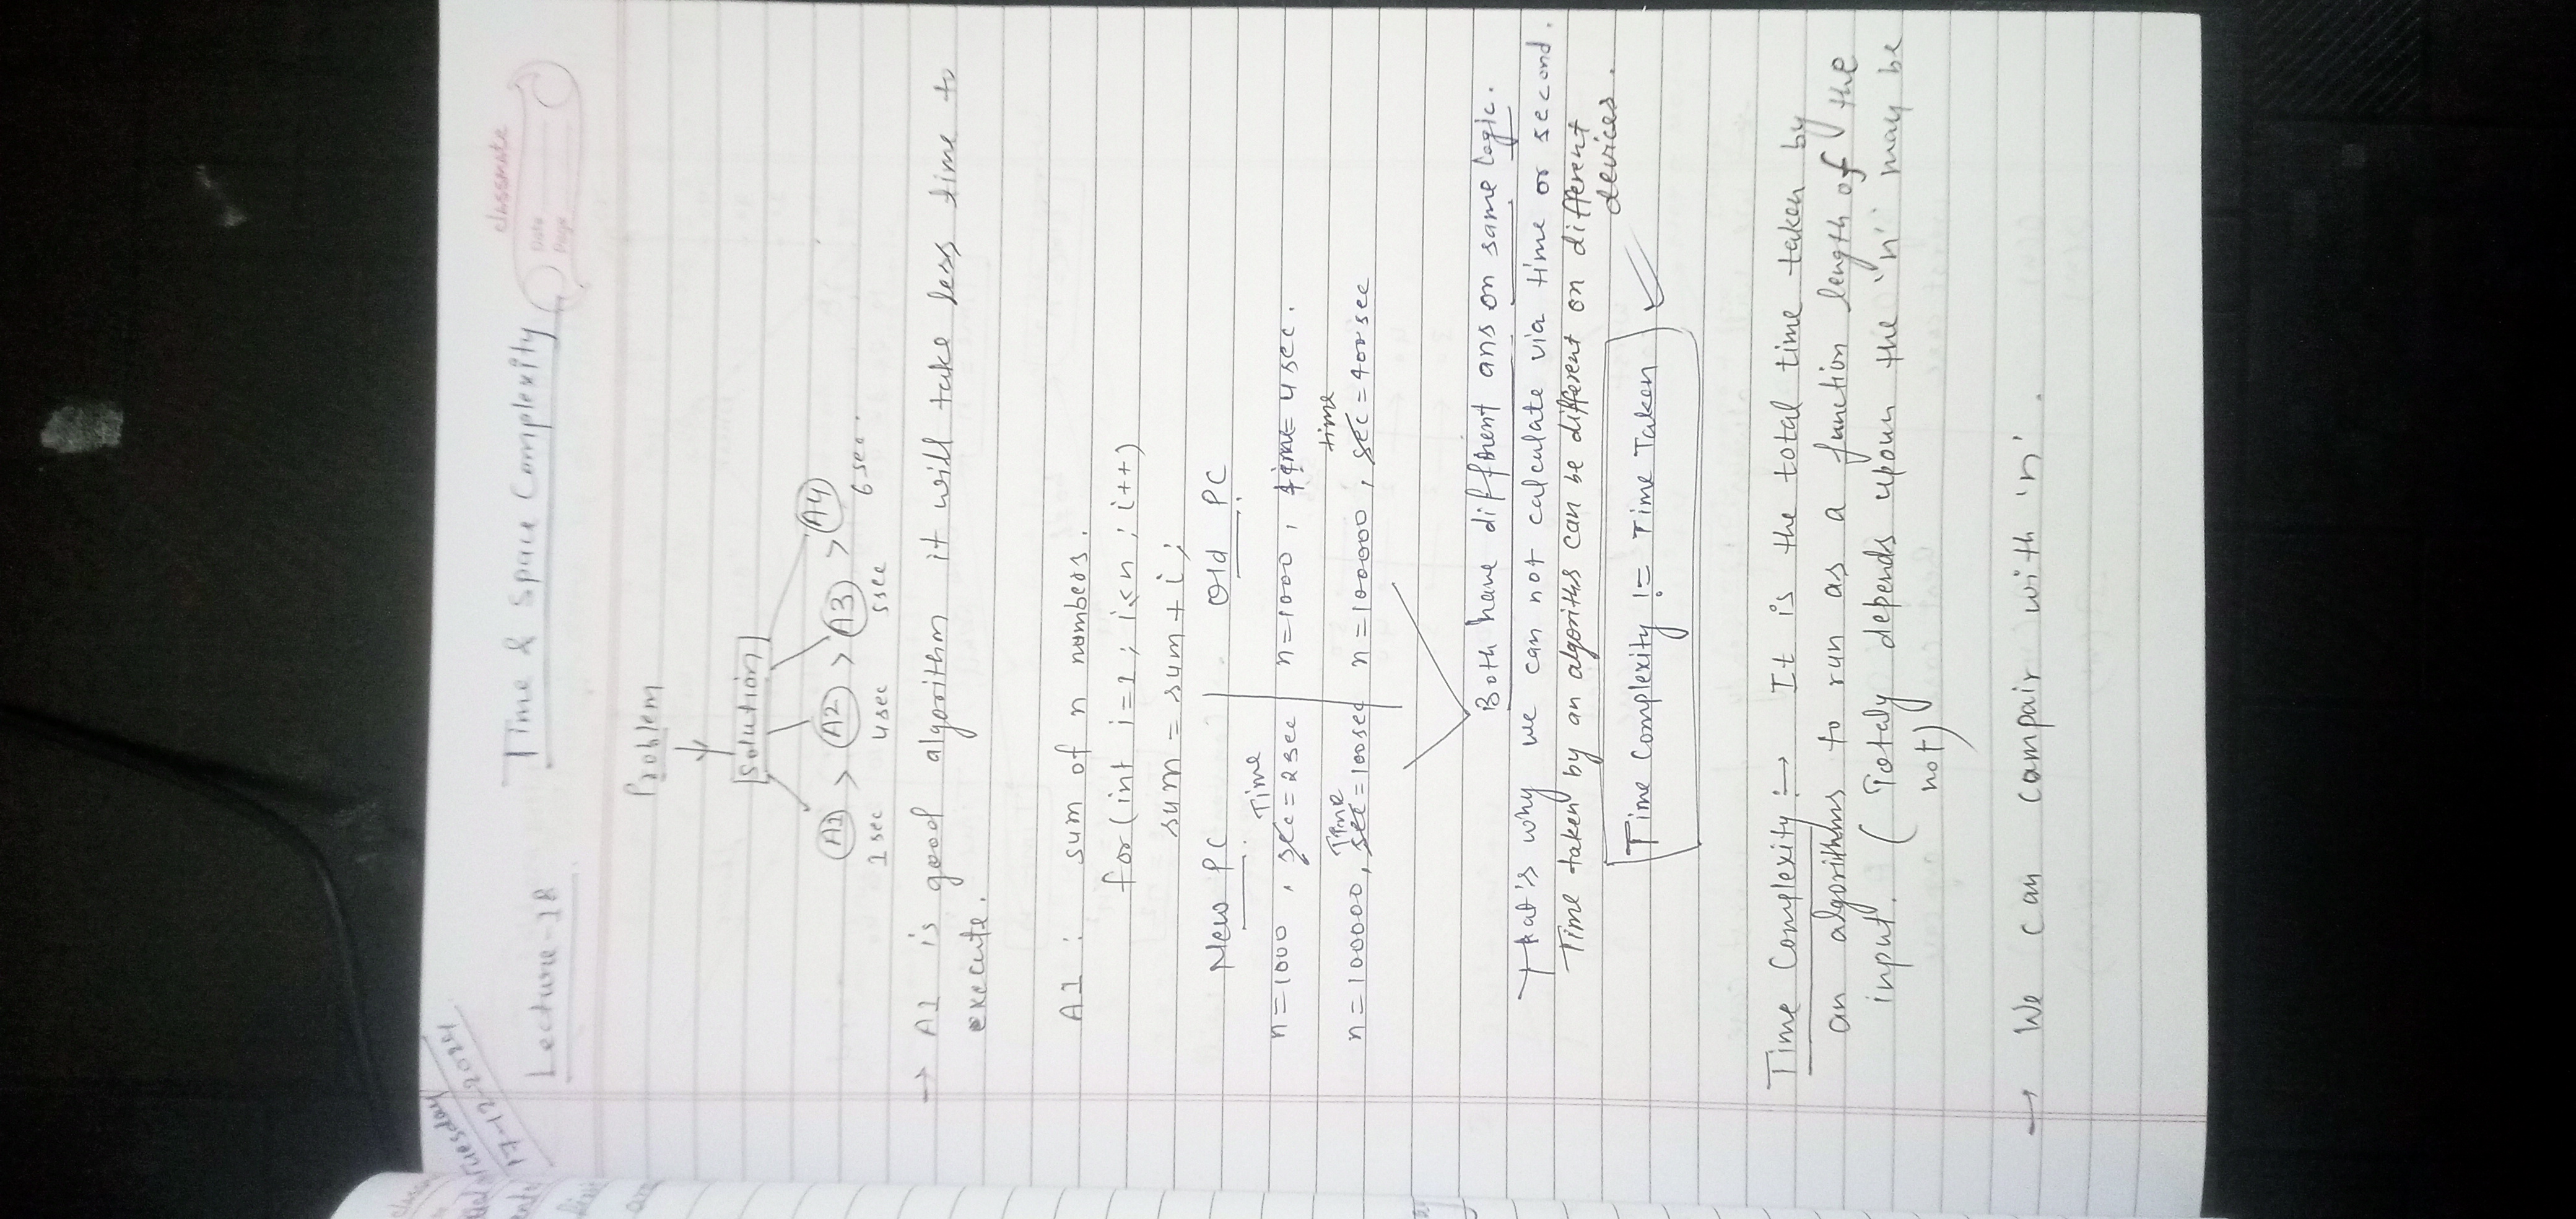 Tuesday
17-12-2024
classmate
Date
Page
Lecture-18
Time & Space Complexity
Problem
Solution
A1 > A2 > A3 > A4
1 sec 4 sec 5 sec 6 sec.
→ A1 is good algorithm it will take less time to
execute.
A1 : sum of n numbers.
for(int i=1; i<n; i++)
sum = sum + i;
New PC Old PC
Time
n=1000, sec=2sec n=1000, time= 4 sec.
Time time
n=100000, sec=100sec n=100000, sec=400 sec
Both have diffrent ans on same logic.
That's why we can not calculate via time or second.
Time taken by an algoriths can be different on different
devices.
Time Complexity != Time Taken
Time Complexity :→ It is the total time taken by
an algorithms to run as a function length of the
input. ( Totely depends upoun the "n" may be
not)
→ We can campair with 'n'.